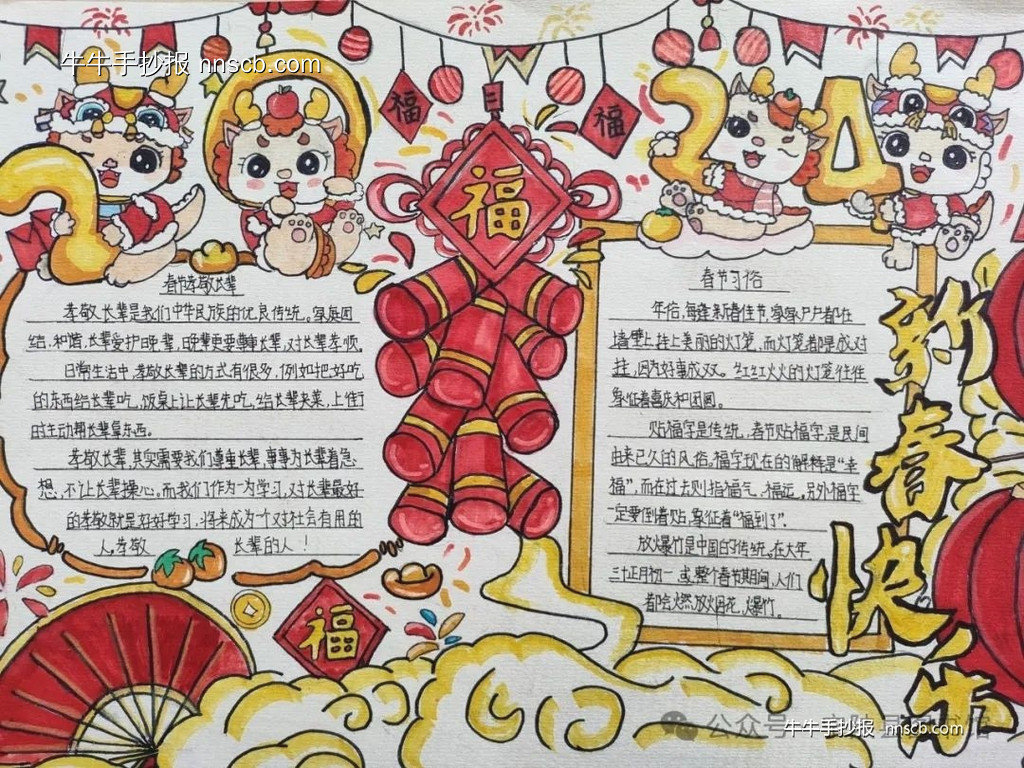 牛牛手抄报 nnscb.com
福
福
福
2
2
4
春节孝敬长辈
孝敬长辈是我们中华民族的优良传统。家庭团
结、和谐,长辈爱护晚辈,晚辈更要尊重长辈,对长辈孝顺。
日常生活中,孝敬长辈的方式有很多,例如把好吃
的东西给长辈吃,饭桌上让长辈先吃,给长辈夹菜,上街了
时主动帮长辈拿东西。
孝敬长辈,其实需要我们尊重长辈,事事为长辈着急
想,不让长辈操心。而我们作为一为学习,对长辈最好
的孝敬就是好好学习,将来成为一个对社会有用的
人,孝敬 长辈的人!
福
春节习俗
年俗,每逢新春佳节,家家户户都在
墙壁上挂上美丽的灯笼,而灯笼都是成对
挂,因为好事成双。红红火火的灯笼往往
象征着喜庆和团圆。
贴福字是传统,春节贴福字,是民间
由来已久的风俗。福字现在的解释是“幸
福”,而在过去则指福气、福运。另外福字
一定要倒着贴,象征着“福到了”。
放爆竹是中国的传统。在大年
三十,正月初一或整个春节期间,人们
都会燃放烟花,爆竹。
新春快乐
公众号
牛牛手抄报 nnscb.com